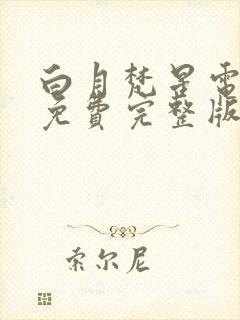 白月梵星電
免費完整版
索尔尼